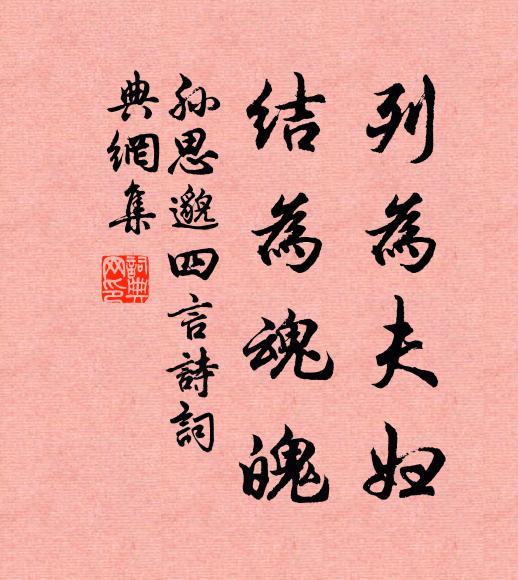 列為夫婦
結為魂魄
孫思邈四言詩詞
典網集
詞典網印